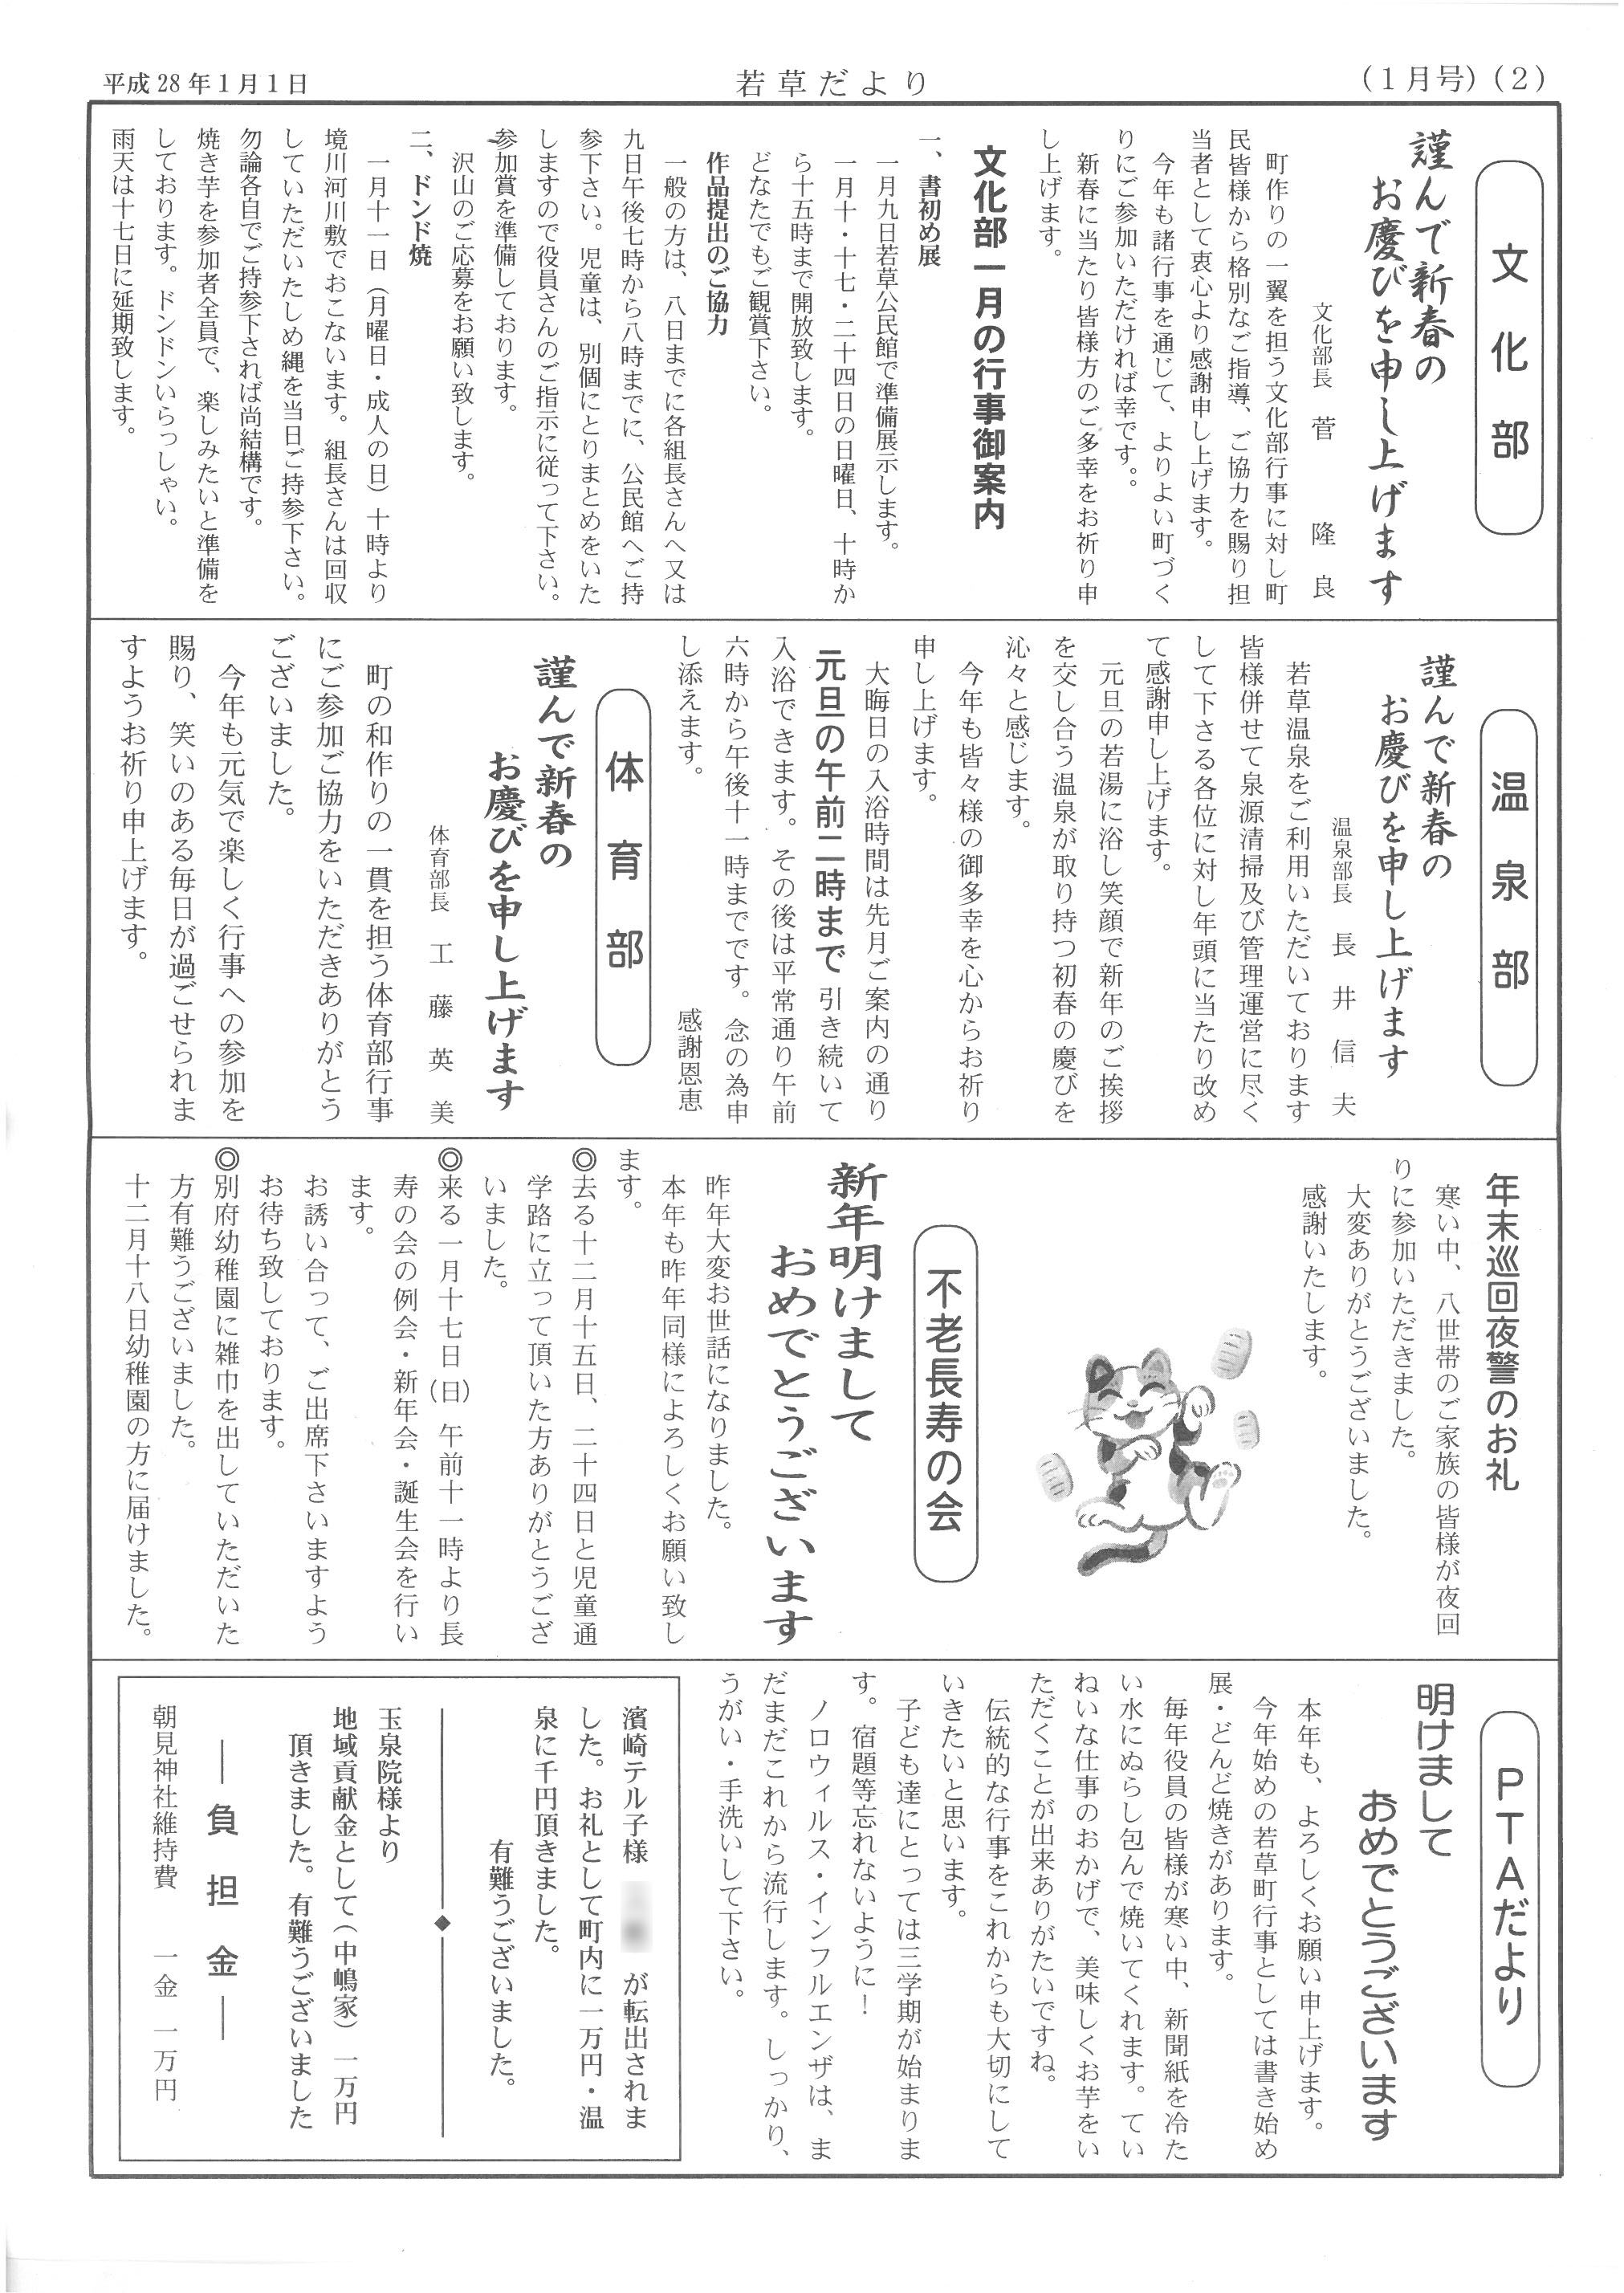 平成28年1月1日
若草だより
(1月号)(2)
文化部
謹んで新春の
お慶びを申し上げます
文化部長 菅 隆良
町作りの一翼を担う文化部行事に対し町
民皆様から格別なご指導、ご協力を賜り担
当者として衷心より感謝申し上げます。
今年も諸行事を通じて、よりよい町づく
りにご参加いただければ幸です。。
新春に当たり皆様方のご多幸をお祈り申
し上げます。
文化部一月の行事御案内
一、書初め展
一月九日若草公民館で準備展示します。
一月十・十七・二十四日の日曜日、十時か
ら十五時まで開放致します。
どなたでもご観賞下さい。
作品提出のご協力
一般の方は、八日までに各組長さんへ又は
九日午後七時から八時までに、公民館へご持
参下さい。児童は、別個にとりまとめをいた
しますので役員さんのご指示に従って下さい。
参加賞を準備しております。
沢山のご応募をお願い致します。
二、ドンド焼
一月十一日(月曜日・成人の日)十時より
境川河川敷でおこないます。組長さんは回収
していただいたしめ縄を当日ご持参下さい。
勿論各自でご持参下されば尚結構です。
焼き芋を参加者全員で、楽しみたいと準備を
しております。ドンドンいらっしゃい。
雨天は十七日に延期致します。
温泉部
謹んで新春の
お慶びを申し上げます
温泉部長 長井信夫
若草温泉をご利用いただいております
皆様併せて泉源清掃及び管理運営に尽く
して下さる各位に対し年頭に当たり改め
て感謝申し上げます。
元旦の若湯に浴し笑顔で新年のご挨拶
を交し合う温泉が取り持つ初春の慶びを
沁々と感じます。
今年も皆々様の御多幸を心からお祈り
申し上げます。
大晦日の入浴時間は先月ご案内の通り
元旦の午前二時まで引き続いて
入浴できます。その後は平常通り午前
六時から午後十一時までです。念の為申
し添えます。 感謝恩恵
体育部
謹んで新春の
お慶びを申し上げます
体育部長 工藤英美
町の和作りの一貫を担う体育部行事
にご参加ご協力をいただきありがとう
ございました。
今年も元気で楽しく行事への参加を
賜り、笑いのある毎日が過ごせられま
すようお祈り申上げます。
年末巡回夜警のお礼
寒い中、八世帯のご家族の皆様が夜回
りに参加いただきました。
大変ありがとうございました。
感謝いたします。
不老長寿の会
新年明けまして
おめでとうございます
昨年大変お世話になりました。
本年も昨年同様によろしくお願い致し
ます。
◎去る十二月十五日、二十四日と児童通
学路に立って頂いた方ありがとうござ
いました。
◎来る一月十七日(日)午前十一時より長
寿の会の例会・新年会・誕生会を行い
ます。
お誘い合って、ご出席下さいますよう
お待ち致しております。
◎別府幼稚園に雑巾を出していただいた
方有難うございました。
十二月十八日幼稚園の方に届けました。
PTAだより
明けまして
おめでとうございます
本年も、よろしくお願い申上げます。
今年始めの若草町行事としては書き始め
展・どんど焼きがあります。
毎年役員の皆様が寒い中、新聞紙を冷た
い水にぬらし包んで焼いてくれます。てい
ねいな仕事のおかげで、美味しくお芋をい
ただくことが出来ありがたいですね。
伝統的な行事をこれからも大切にして
いきたいと思います。
子ども達にとっては三学期が始まりま
す。宿題等忘れないように!
ノロウィルス・インフルエンザは、ま
だまだこれから流行します。しっかり、
うがい・手洗いして下さい。
濱崎テル子様 が転出されま
した。お礼として町内に一万円・温
泉に千円頂きました。
有難うございました。
玉泉院様より
地域貢献金として(中嶋家) 一万円
頂きました。有難うございました
―負担金―
朝見神社維持費 一金 一万円